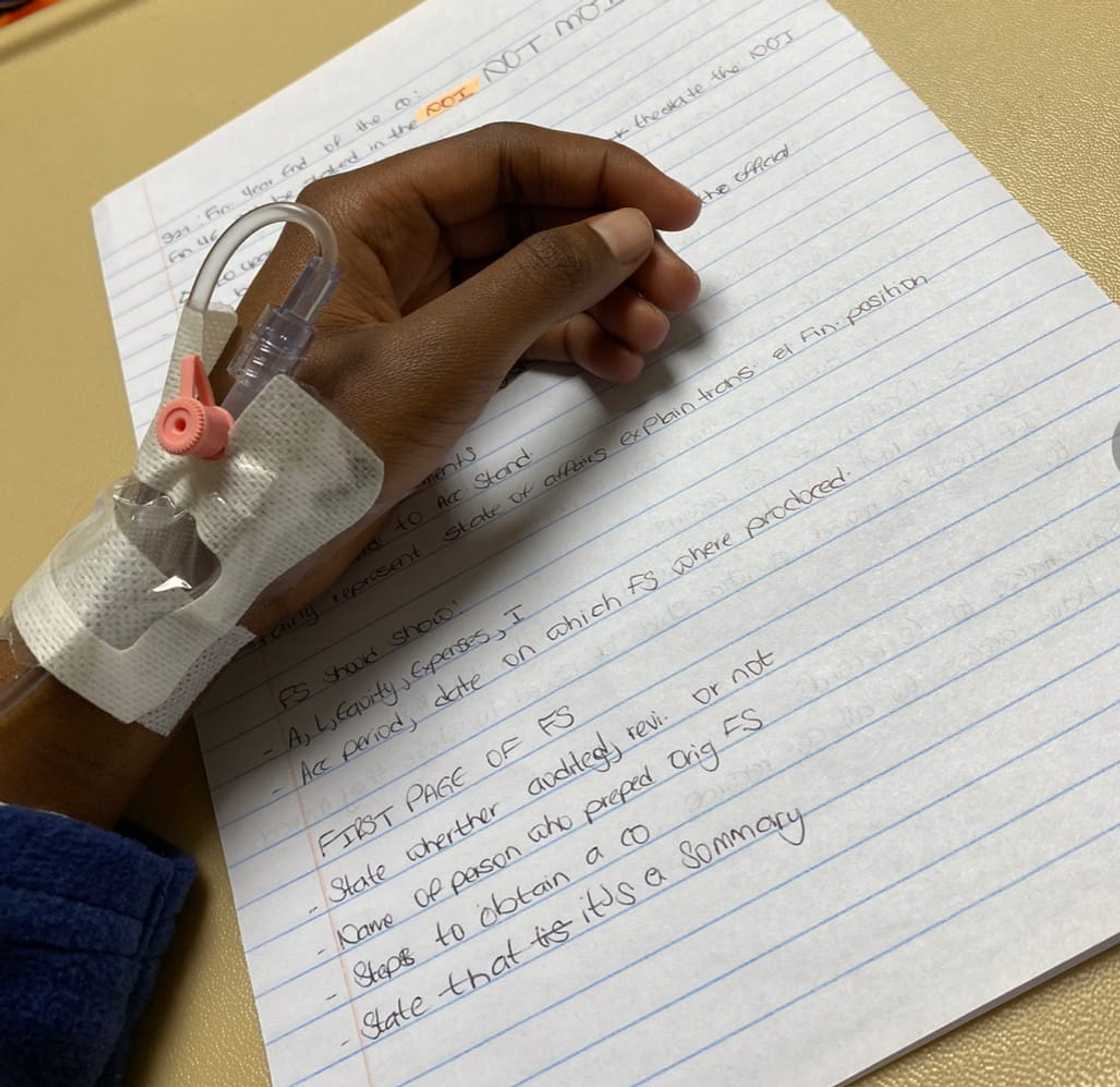 Fin. Year End of the co:
stated in the NOI NOT MOI
the state the NOI
the official
to Acc Stand.
represent state of affairs explain trans. & Fin. position
FS should show:
- A, L, Equity, Expenses, I
- Acc period, date on which FS where produced.
FIRST PAGE OF FS
- State wherther audited, revi. or not
- Name of person who preped Orig FS
- Steps to obtain a co
- State that tis it's a Sommary